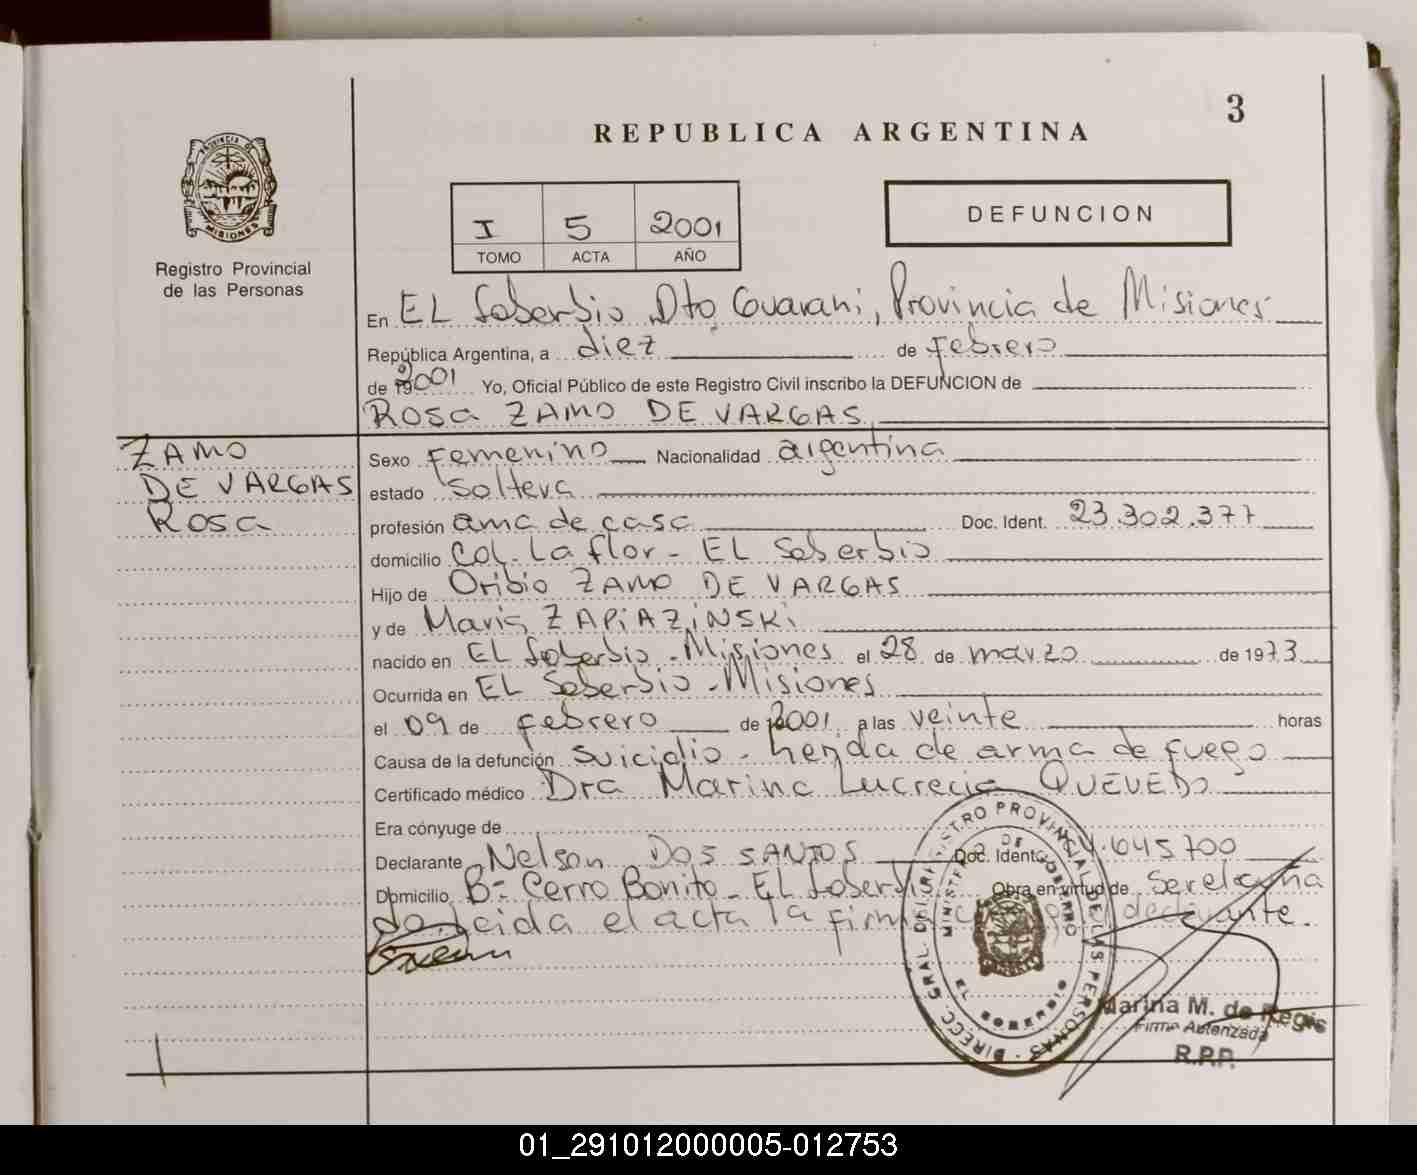 3
REPUBLICA ARGENTINA
PROVINCIA DE MISIONES
Registro Provincial
de las Personas
I 5 2001
TOMO ACTA AÑO
DEFUNCION
En EL Soberbio Dto Guarani, Provincia de Misiones
República Argentina, a diez de febrero
de 2001 Yo, Oficial Público de este Registro Civil inscribo la DEFUNCION de
ROSA ZAMO DE VARGAS
ZAMO
DE VARGAS
Rosa
Sexo Femenino Nacionalidad argentina
estado Soltera
profesión ama de casa Doc. Ident. 23.302.377
domicilio Col. La flor - EL Soberbio
Hijo de Oribio ZAMO DE VARGAS
y de Maria ZAPIAZINSKI
nacido en EL Soberbio - Misiones el 28 de marzo de 1973
Ocurrida en EL Soberbio - Misiones
el 09 de febrero de 2001 a las veinte horas
Causa de la defunción Suicidio - herida de arma de fuego
Certificado médico Dra Marina Lucrecia QUEVEDO
Era cónyuge de
Declarante Nelson DOS SANTOS Doc. Ident. 645700
Domicilio Bº Cerro Bonito - EL Soberbio Obra en virtud de
el acta la firma declarante.
DIRECC. GRAL. DEL REGISTRO PROVINCIAL DE LAS PERSONAS
MINISTERIO DE GOBIERNO
EL SOBERBIO
Marina M. de Regis
Firma Autorizada
R.P.P.
01_291012000005-012753